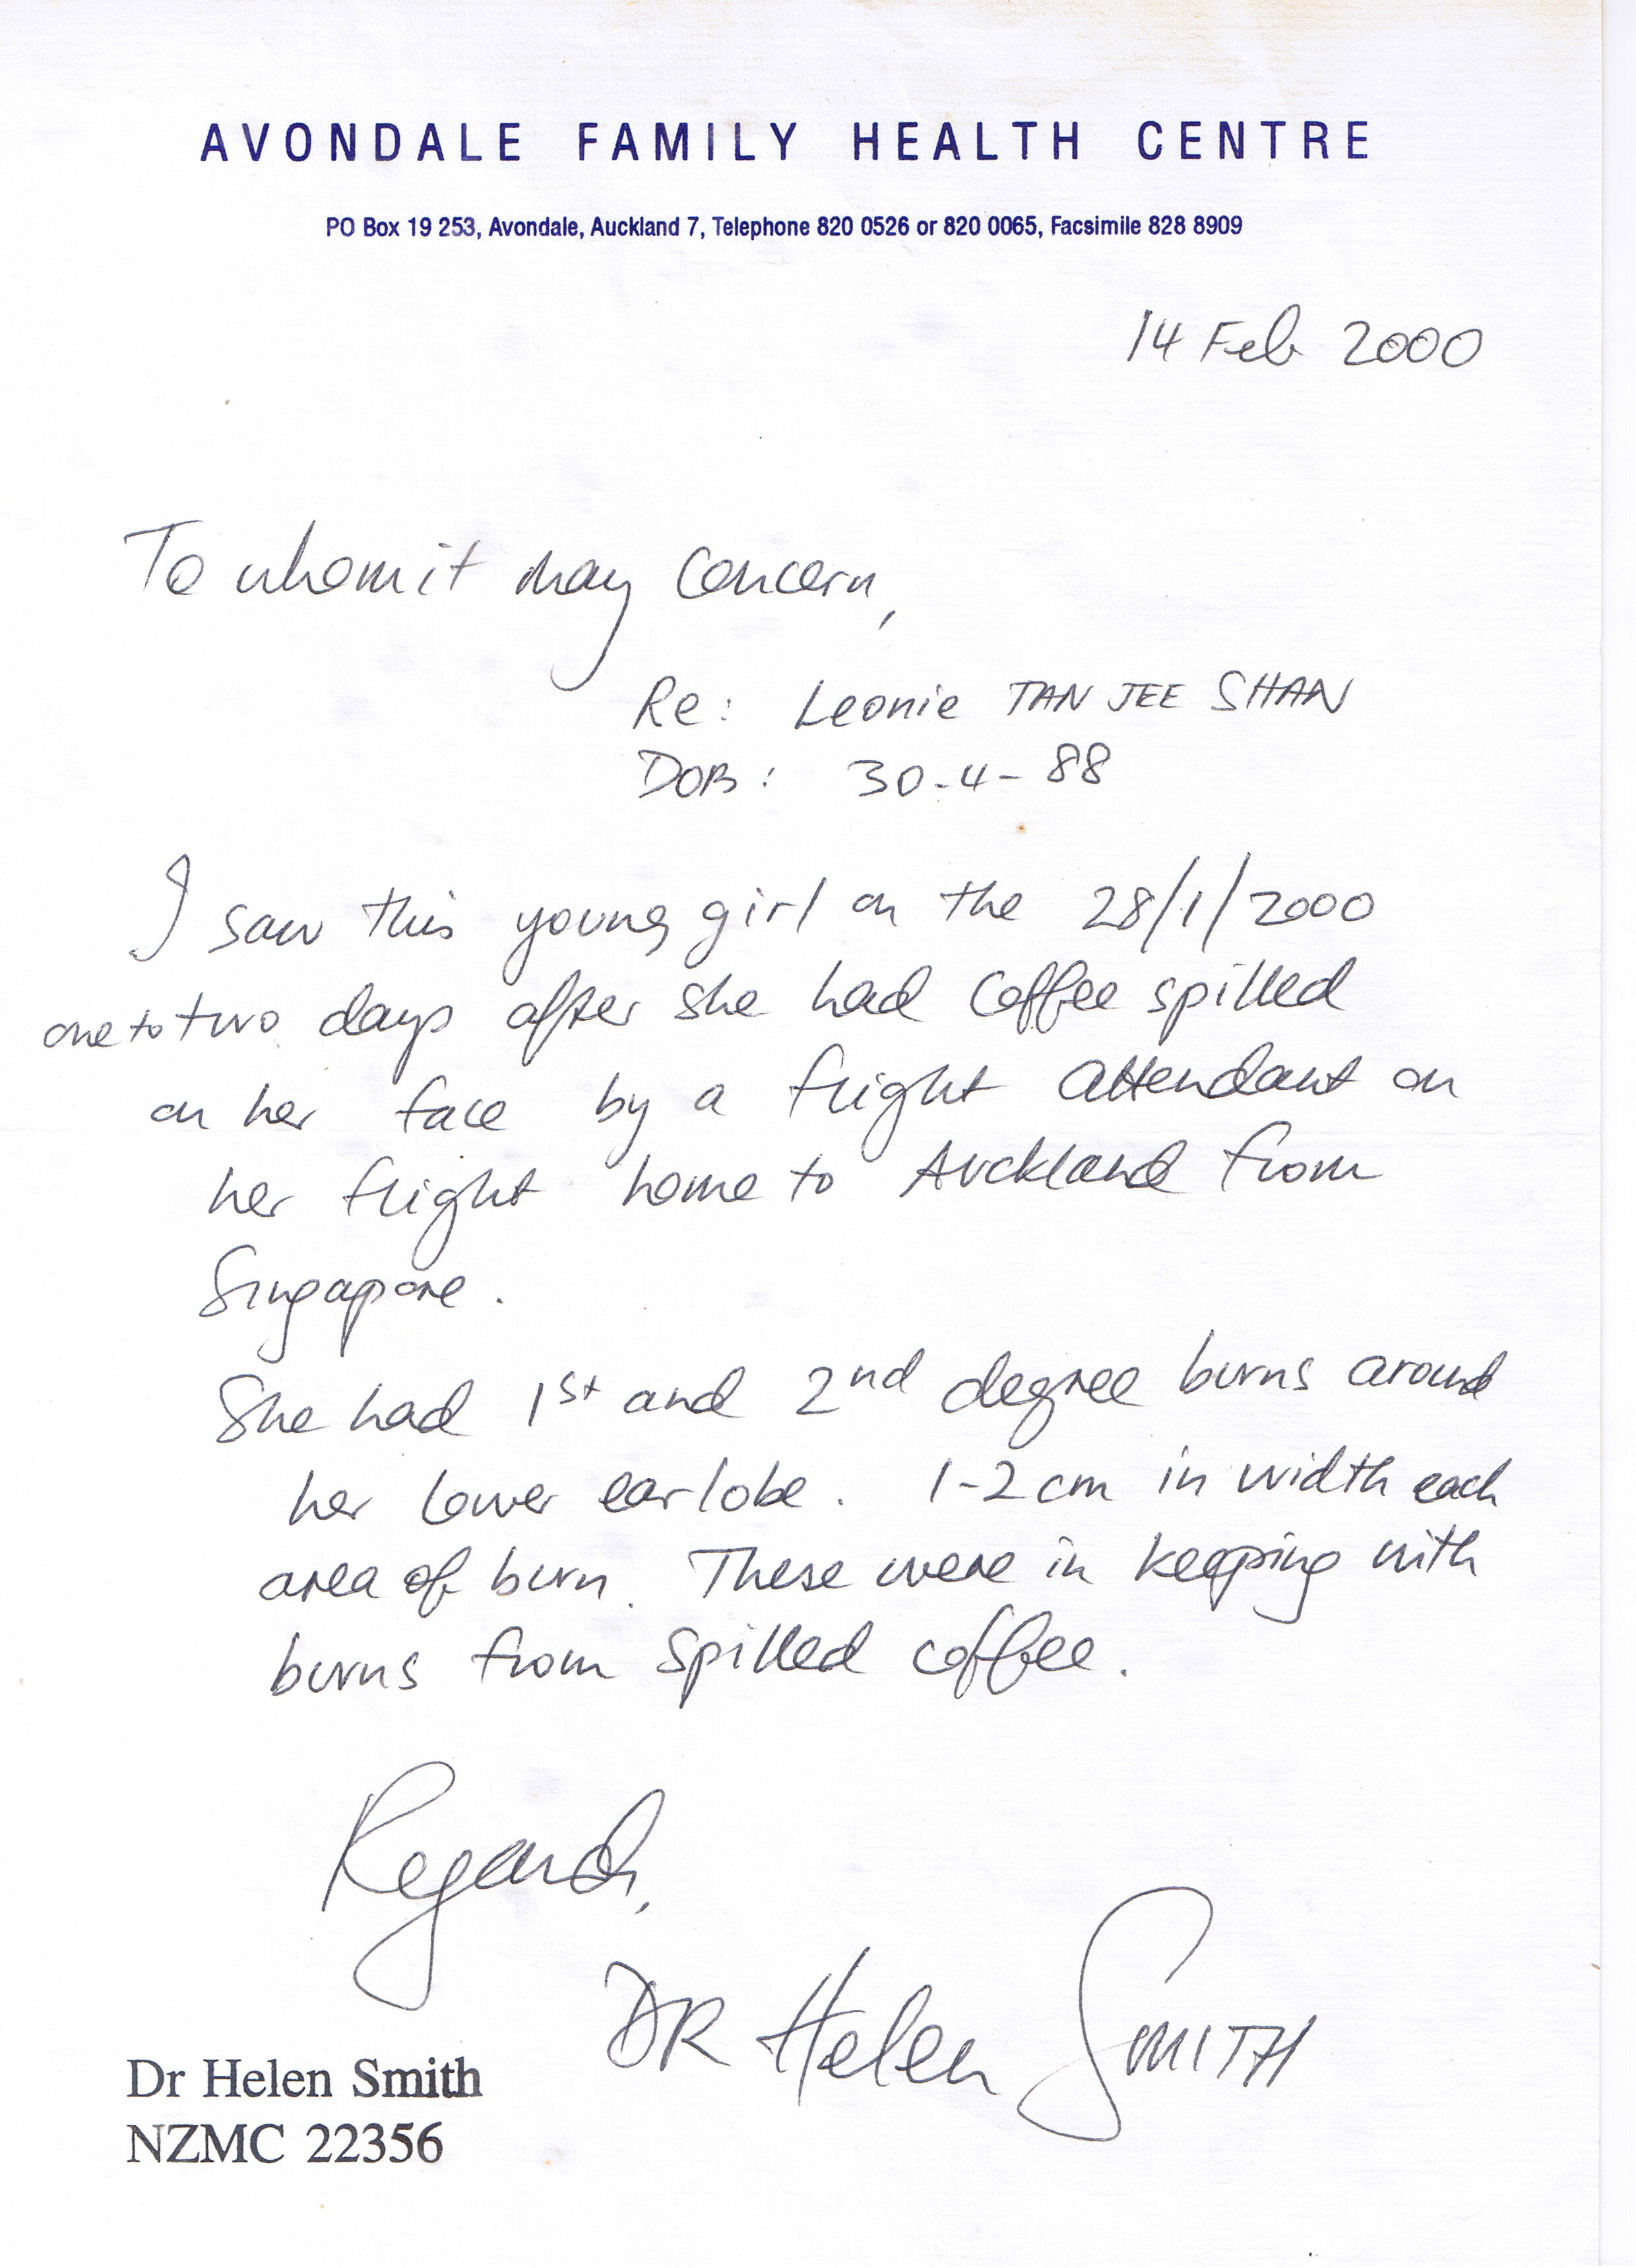 AVONDALE FAMILY HEALTH CENTRE
PO Box 19 253, Avondale, Auckland 7, Telephone 820 0526 or 820 0065, Facsimile 828 8909
14 Feb 2000
To whom it may concern,
Re: Leonie TAN JEE SHAN
DOB: 30-4-88
I saw this young girl on the 28/1/2000
one to two days after she had coffee spilled
on her face by a flight attendant on
her flight home to Auckland from
Singapore.
She had 1st and 2nd degree burns around
her lower earlobe. 1-2cm in width each
area of burn. These were in keeping with
burns from spilled coffee.
Regards,
DR Helen SMITH
Dr Helen Smith
NZMC 22356